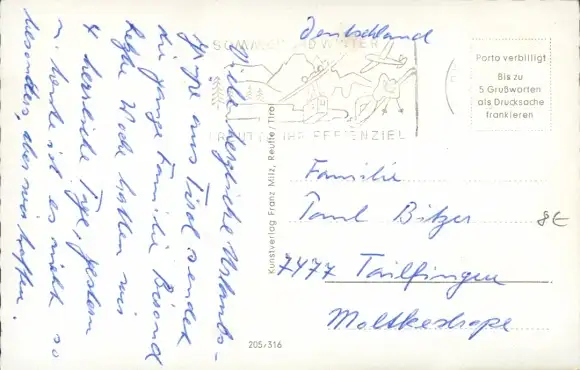 Deutschland
SOMMER UND WINTER
IHR FERIENZIEL
Porto verbilligt
Bis zu
5 Grußworten
als Drucksache
frankieren
Viele herzliche Urlaubs-
grüße aus Tirol sendet
die ganze Familie
Letzte Woche hatten wir
4 herrliche Tage, gestern
u. heute ist es nicht so
besonders, aber wir hoffen.
Kunstverlag Franz Milz, Reutte/Tirol
Familie
Paul Bitzer
7477 Tailfingen
Moltkestraße
8E
205/316